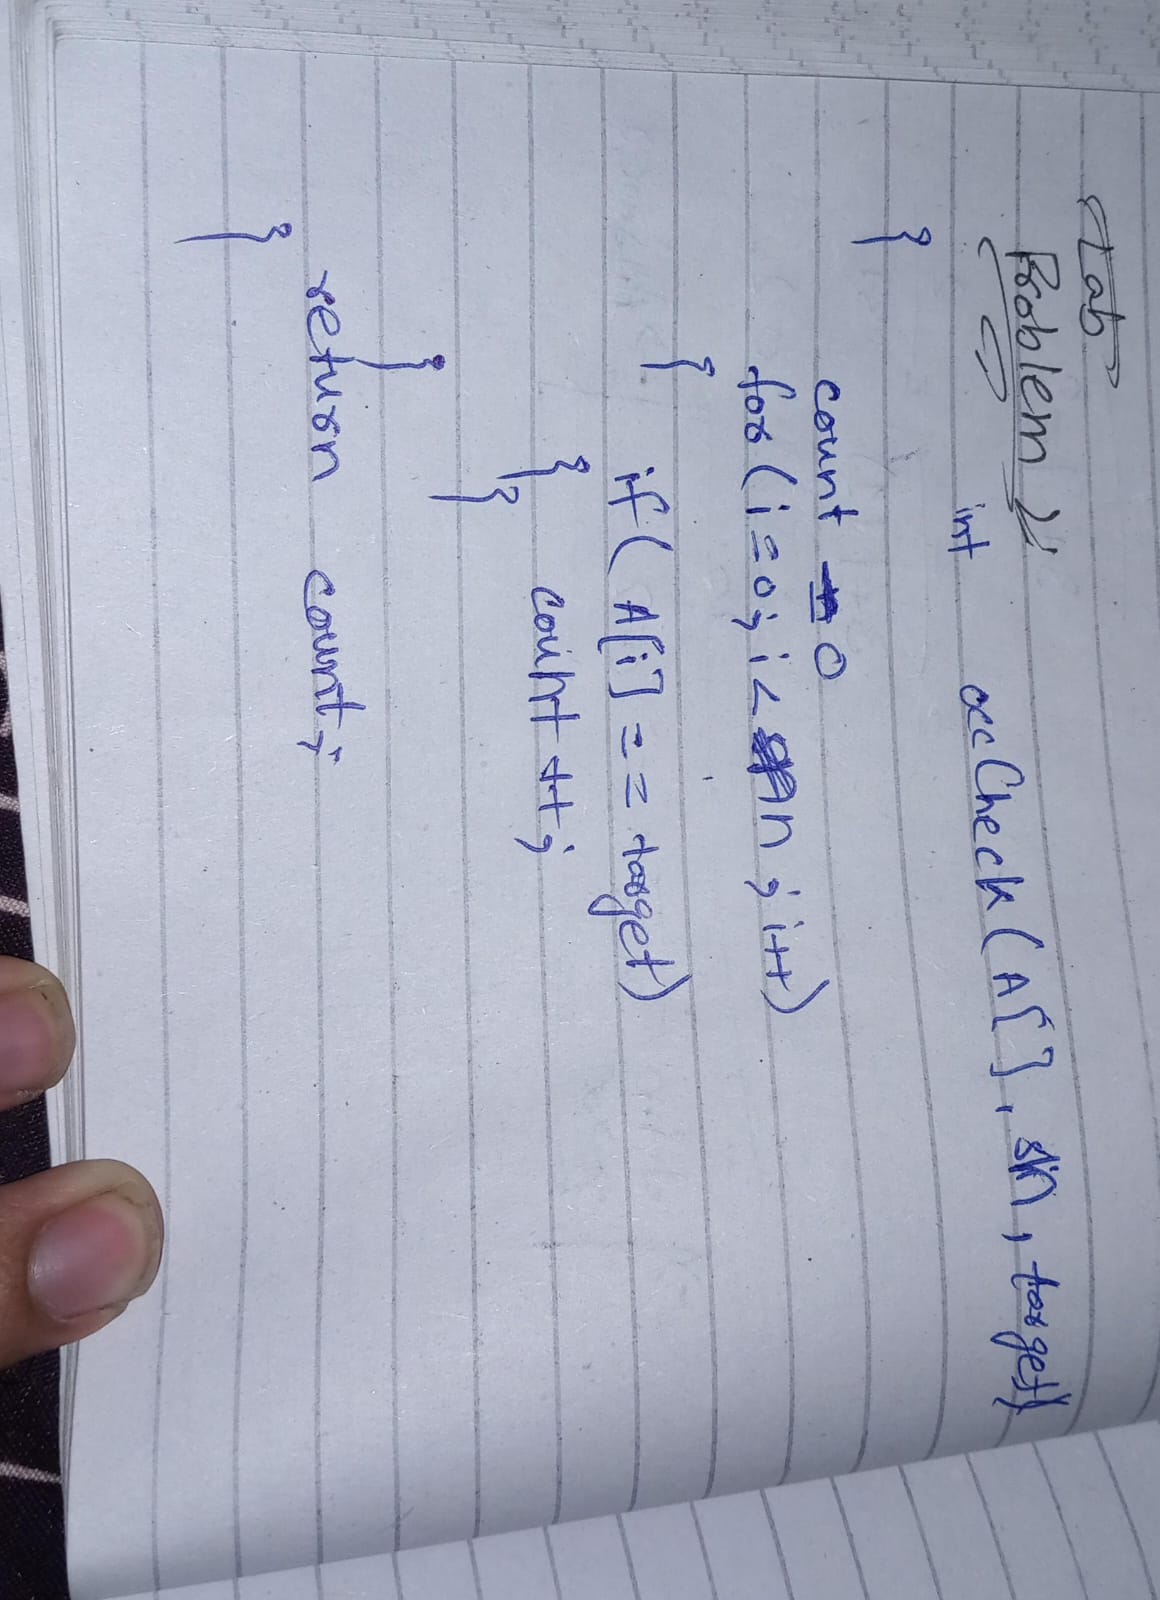 Lab
Problem 2
int occCheck (A[], n, target)
{
count = 0
for (i=0; i< n ; i++)
{
if ( A[i] == target)
{ count ++;
}
}
return count;
}